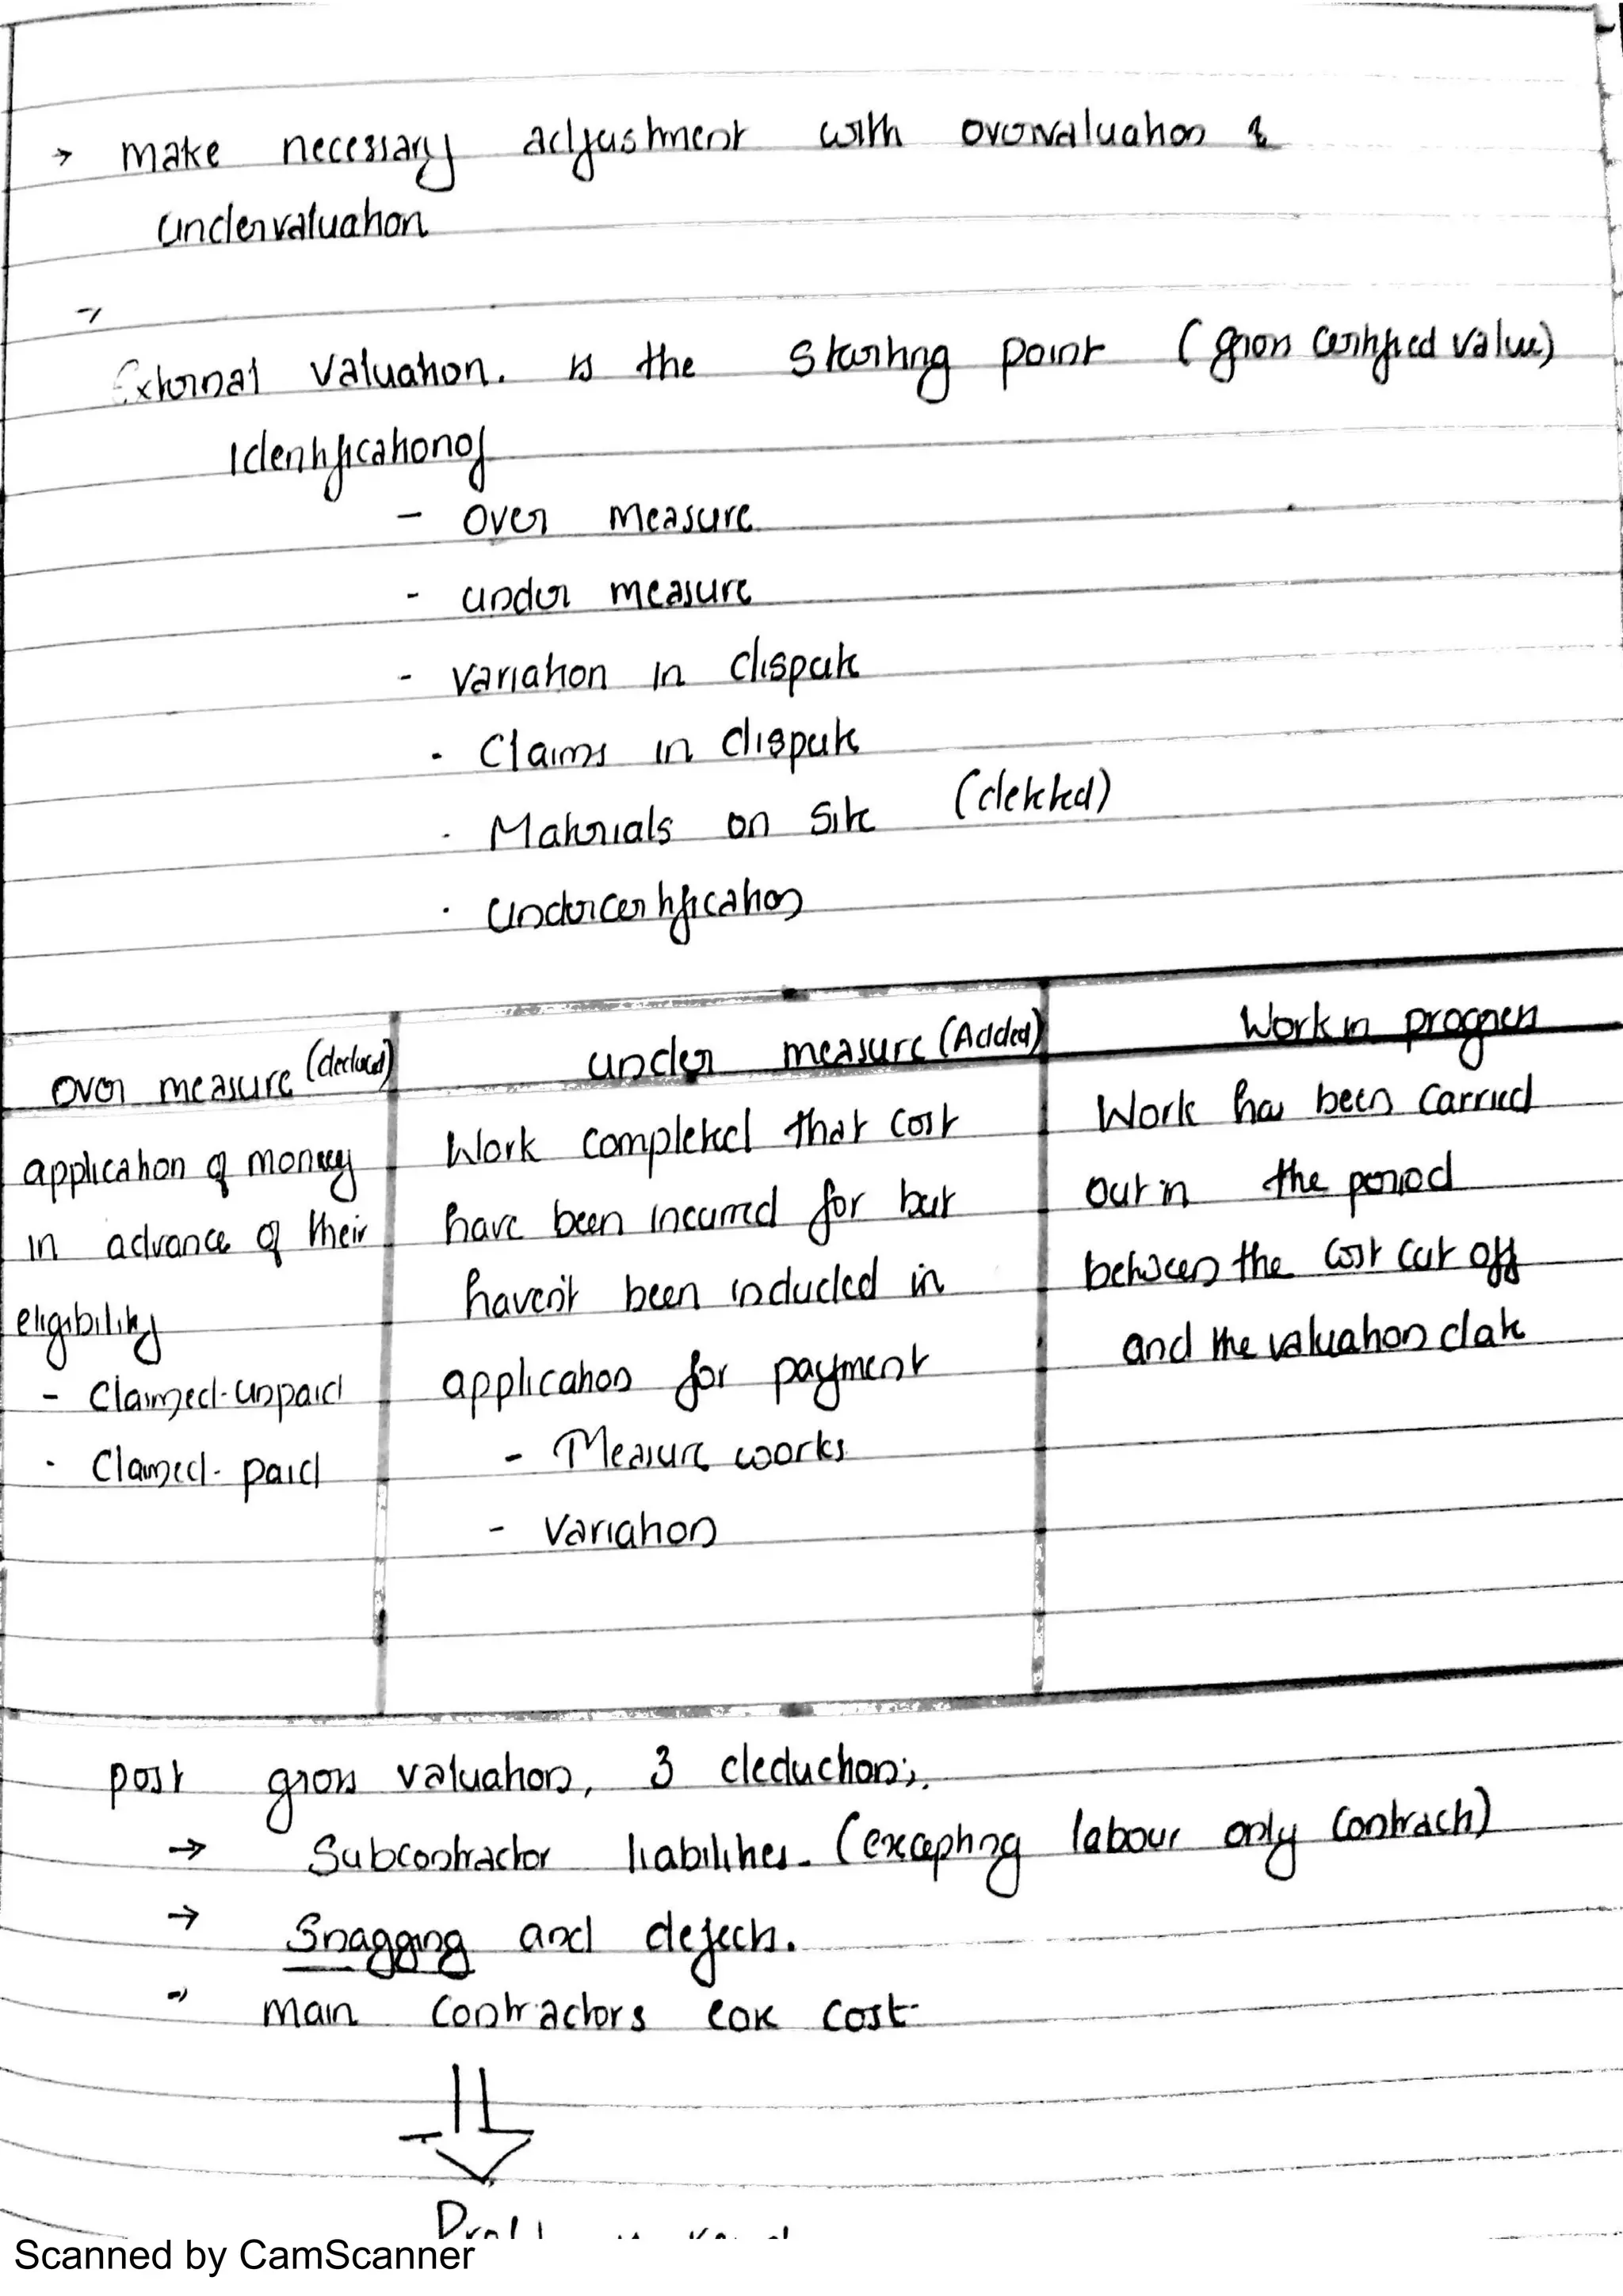 → make necessary adjustment with overvaluation &
undervaluation
→
External valuation. is the starting point (gross certified value)
Identification of
- over measure
- under measure
- variation in dispute
- Claims in dispute
- Materials on site (deleted)
- undercertification
over measure (deduct)
application of money
in advance of their
eligibility
- Claimed-unpaid
- Claimed-paid
under measure (Added)
Work completed that cost
have been incurred for but
haven't been included in
application for payment
- Measure works
- variation
Work in progress
Work has been carried
out in the period
between the cost cut off
and the valuation date
post gross valuation, 3 deductions;
→ Subcontractor liabilities. (excepting labour only contracts)
→ Snagging and defects.
→ main contractors cost
Scanned by CamScanner